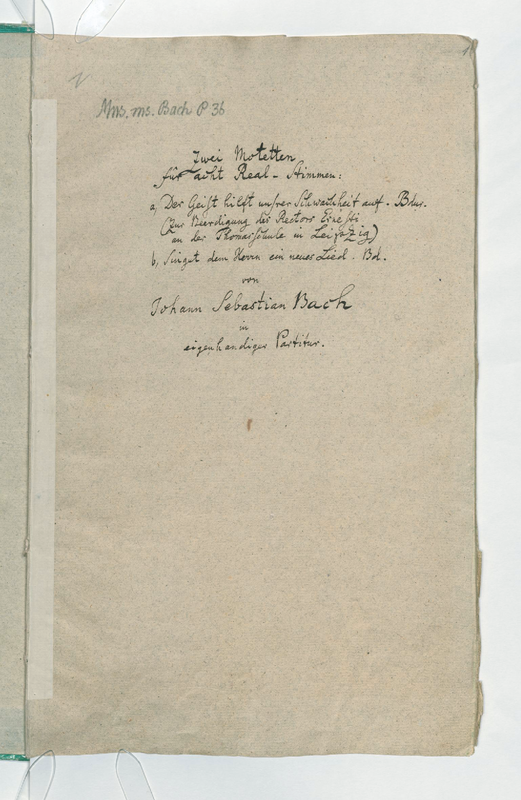 1
Mus. ms. Bach P 36
Zwei Motetten
für acht Real-Stimmen:
a, Der Geist hilft unsrer Schwachheit auf. Bdur.
(Zur Beerdigung des Rectors Ernesti
an der Thomasschule in Leipzig)
b, Singet dem Herrn ein neues Lied. Bd.
von
Johann Sebastian Bach
in
eigenhandiger Partitur.